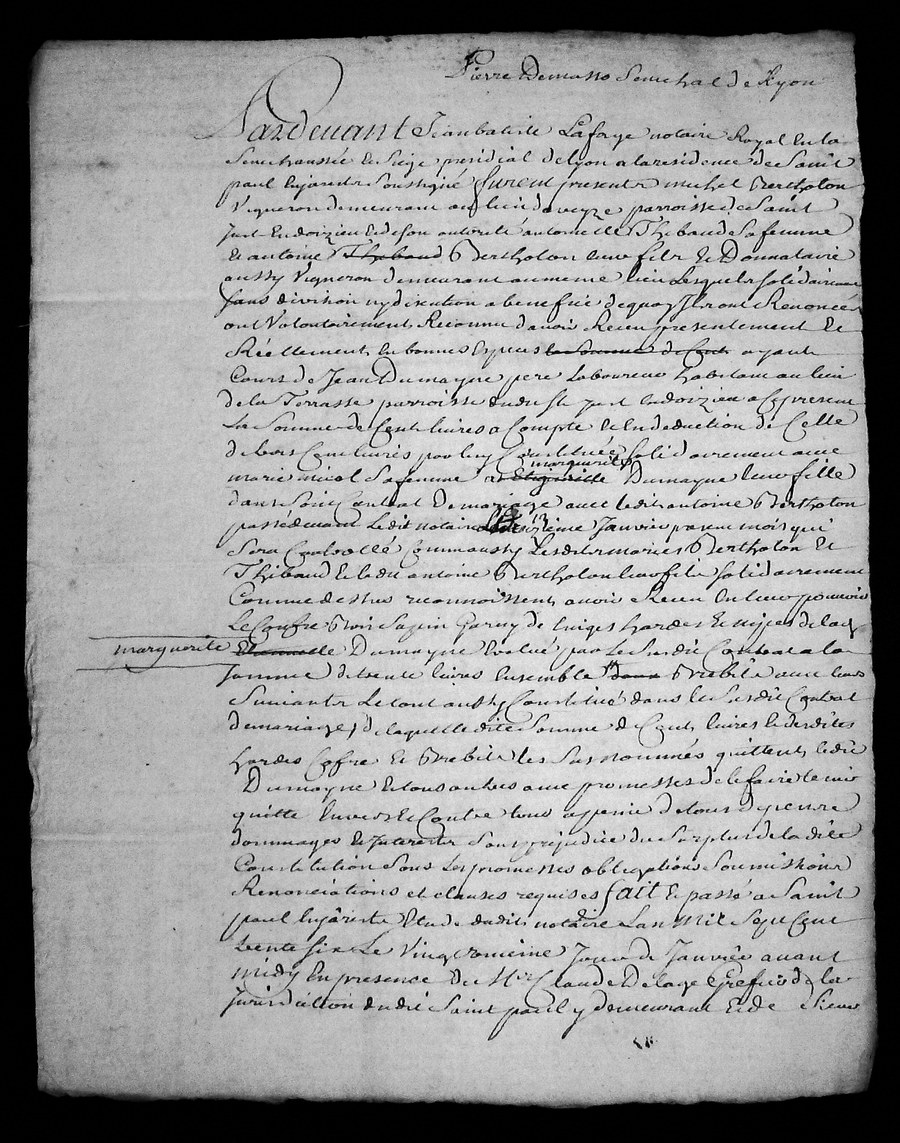 Pierre Demasso Senechal de Lyon
Pardevant Jean batiste Laforge notaire Royal En la
Senechaussée et Siege presidial de lyon a la residence de Saint
paul En jarest Soussigné furent presents michel Bertholon
Vigneron demeurant au lieu daveyze parroisse de Saint
just En doizieu et de son autorité antoinette Thibaud sa femme
et antoine Thibaud Bertholon leur fils et Donnataire
aussy Vigneron demeurant au meme lieu Lesquels solidairement
sans division ny discution a benefice de quoy Ils ont Renoncé
ont Volontairement Reconnu davoir Receu presentement et
Réellement en bonnes Especes la somme de Cent ayant
Cours de Jean Dumayne pere laboureur habitant au lieu
de la Terrasse parroisse dudit St just En doizieu a Ce present
La Somme de Cent livres a Compte et En deduction de Celle
de trois Cent livres par luy Constituée solidairement avec
marie nicol sa femme a marguerite Dumayne leur fille
dans Son Contrat De mariage avec ledit antoine Bertholon
passé devant Ledit notaire Le 13 ieme Janvier present mois qui
Sera Controllé Comm'aussy Lesdits mariés Bertholon et
Thibaud et ledit antoine Bertholon leur fils solidairement
Comme dessus reconnoissent avoir Receu En leur pouvoir
Le Coffre Bois Sapin garny de linges hardes et nipes de lad
marguerite
Dumayne Evalué par Le Susdit Contrat a la
somme de trente livres Ensemble deux Brebis avec leurs
Suivants Le tout aussy Constitué dans le Susdit Contrat
de mariage, de laquelle dite Somme de Cent livres et desdites
hardes Coffre et Brebis les Susnommés quittent ledit
Dumayne et tous autres avec promesses de le faire tenir
quitte Envers et Contre tous a peine de tous depens
dommages et Interests Sans prejudice du Surplus de la dite
Constitution Sous Les promesses obligations Soumissions
Renonciations et clauses requises fait et passé a Saint
paul En jarest Etude dudit notaire L'an Mil Sept Cent
trente six Le Vingt troisieme Jour de Janvier avant
midy En presence De Mre Claude Delage Greffier de la
Jurisdiction dudit Saint paul y demeurant Et de Sieur